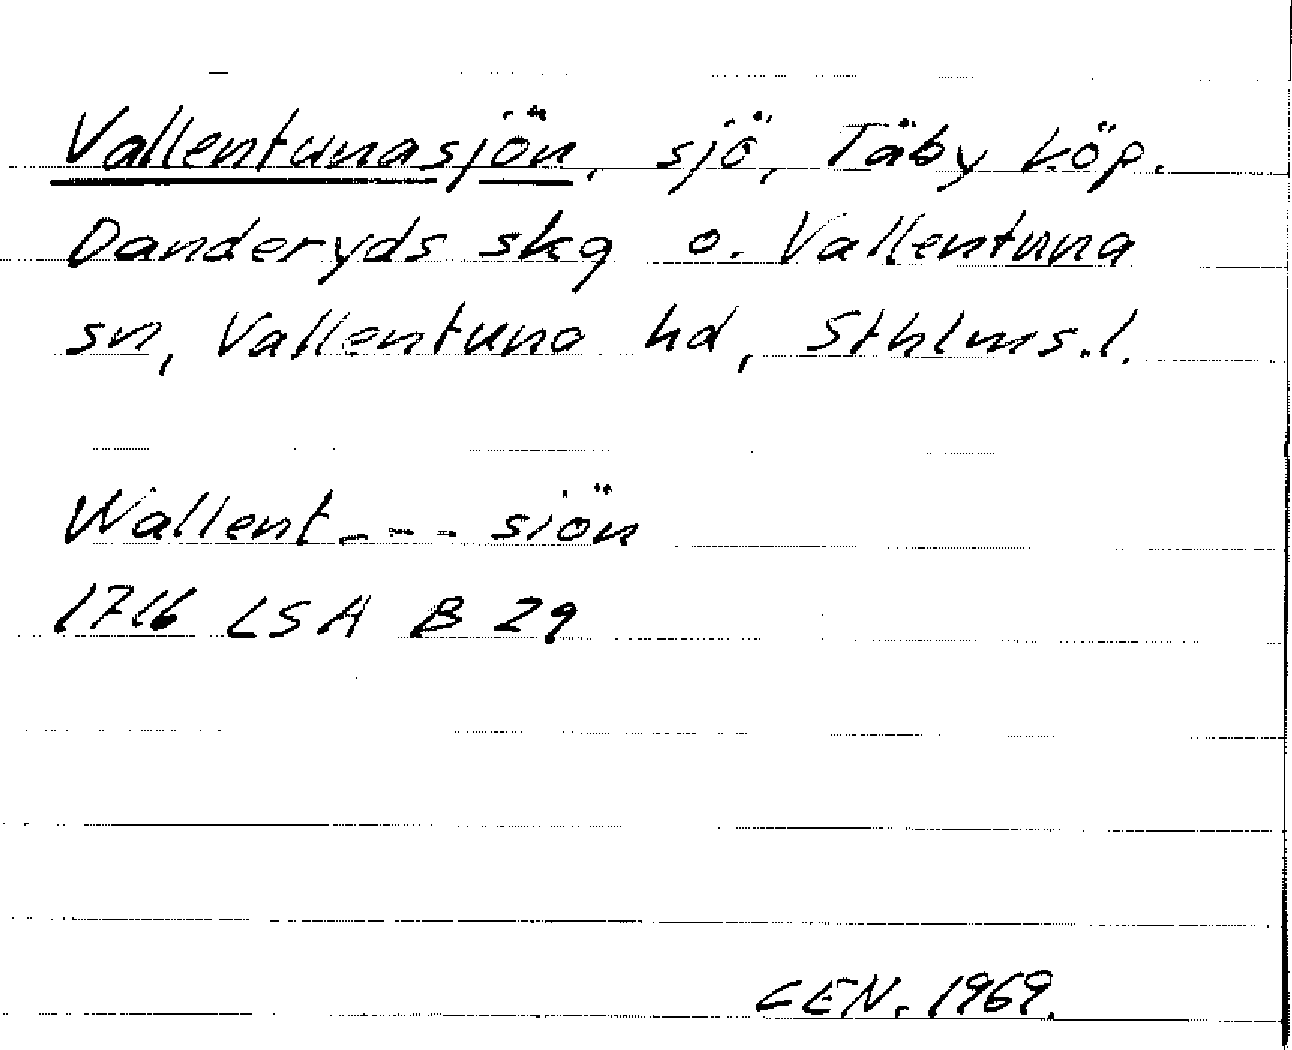 Vallentunasjön, sjö, Täby köp.
Danderyds skg o. Vallentuna
sn, Vallentuna hd, Sthlms.l.
Wallent--- siön
1716 LSA B 29
CEN. 1969.